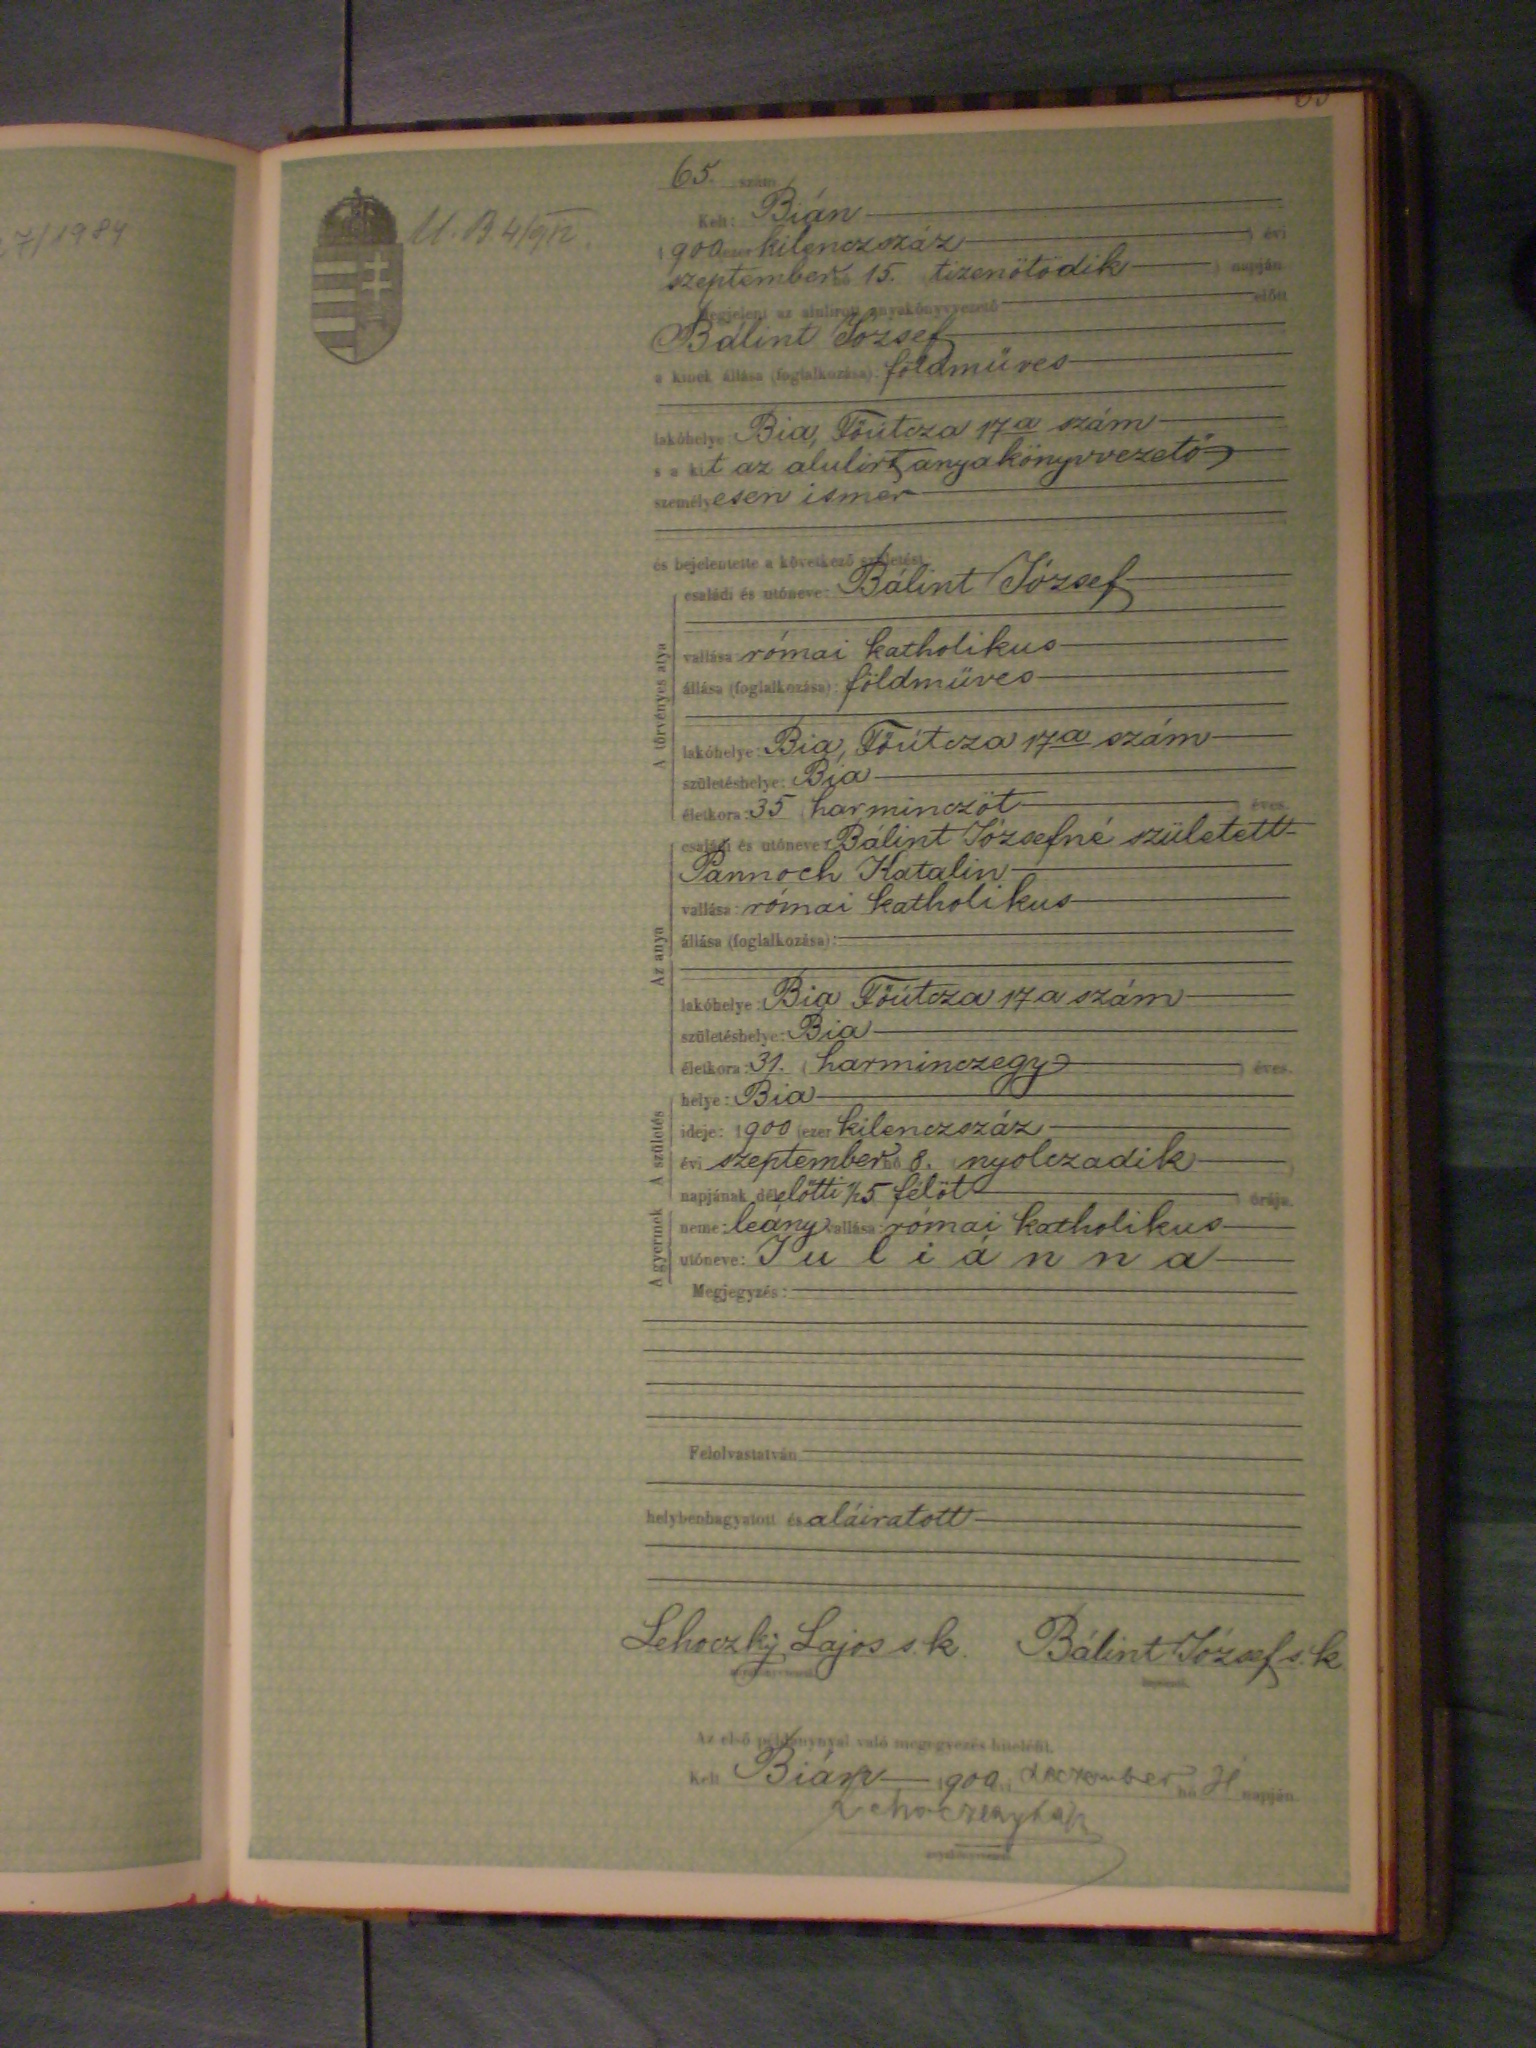 7/1984
65
65. szám
Kelt: Bián
1900 ezer kilenczszáz ) évi
szeptember hó 15. (tizenötödik ) napján
Megjelent az alulirott anyakönyvvezető előtt
Bálint József
a kinek állása (foglalkozása): földmüves
lakóhelye Bia, Főútcza 17 a szám
s a kit az alulirt anyakönyvvezető
személyesen ismer
és bejelentette a következő születést
A törvényes atya
családi és utóneve: Bálint József
vallása: római katholikus
állása (foglalkozása): földmüves
lakóhelye: Bia, Főútcza 17 a szám
születéshelye: Bia
életkora: 35 (harminczöt ) éves.
Az anya
családi és utóneve: Bálint Józsefné született
Pannoch Katalin
vallása: római katholikus
állása (foglalkozása):
lakóhelye: Bia Főútcza 17 a szám
születéshelye: Bia
életkora: 31. (harminczegy ) éves.
A születés
helye: Bia
ideje: 1900 (ezer kilenczszáz
évi szeptember hó 8. (nyolczadik )
napjának délelőtti ½5 (félöt ) órája.
A gyermek
neme: leány vallása: római katholikus
utóneve: Juliánna
Megjegyzés:
Felolvastatván
helybenhagyatott és aláiratott
Lehoczky Lajos s. k. Bálint József s. k.
anyakönyvvezető
Az első példánynyal való megegyezés hiteléül.
Kelt Bián 1900 évi deczember hó 31 napján
anyakönyvvezető